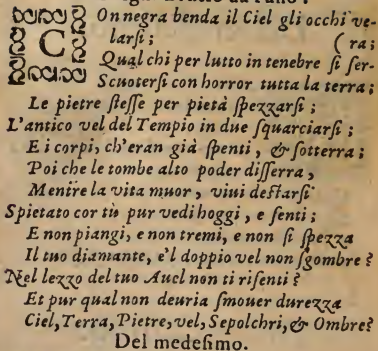 COn negra benda il Ciel gli occhi ve-
larſi; (ra;
Qual chi per lutto in tenebre ſi ſer-
Scuoterſi con horror tutta la terra;
Le pietre ſteſſe per pietà ſpezzarſi;
L'antico vel del Tempio in due ſquarciarſi;
E i corpi, ch'eran già ſpenti, & ſotterra;
Poi che le tombe alto poder diſſerra,
Mentre la vita muor, viui deſtarſi
Spietato cor tù pur vedi hoggi, e ſenti;
E non piangi, e non tremi, e non ſi ſpezza
Il tuo diamante, e'l doppio vel non ſgombre?
Nel lezzo del tuo Auel non ti riſenti?
Et pur qual non deuria ſmouer durezza
Ciel, Terra, Pietre, vel, Sepolchri, & Ombre?
Del medeſimo.